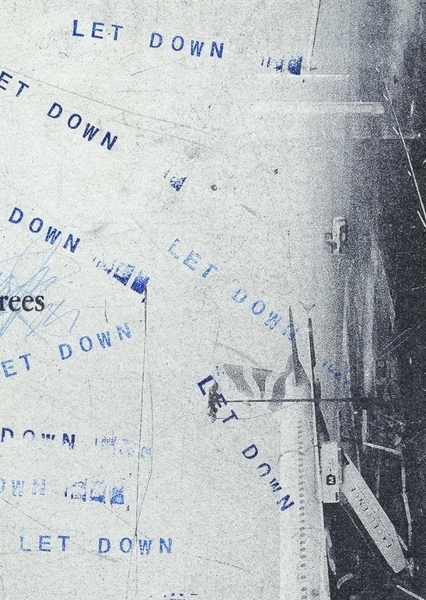 LET DOWN
ET DOWN
DOWN
LET DOWN
rees
ET DOWN
LET DOWN
DOWN
OWN
LET DOWN